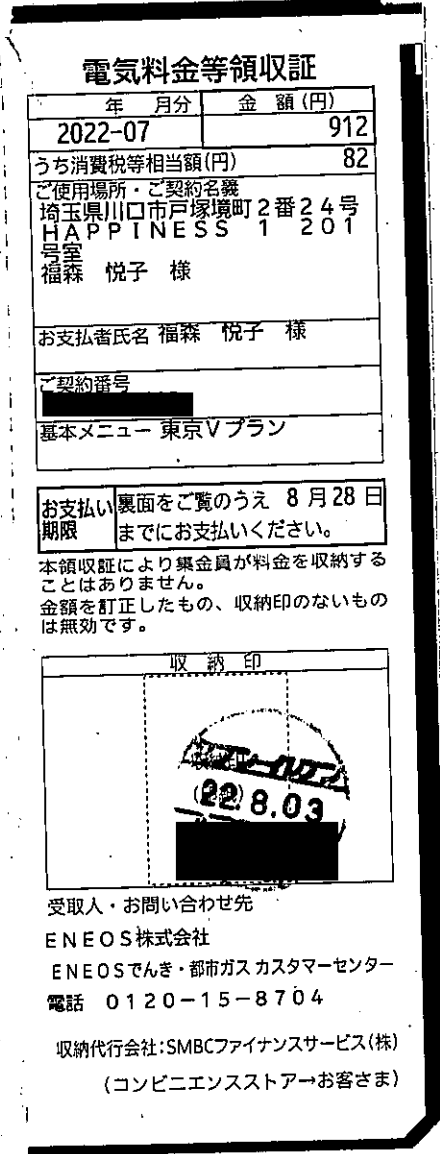 電気料金等領収証
年 月分 金 額(円)
2022-07 912
うち消費税等相当額(円) 82
ご使用場所・ご契約名義
埼玉県川口市戸塚境町2番24号
HAPPINESS 1 201
号室
福森 悦子 様
お支払者氏名 福森 悦子 様
ご契約番号
基本メニュー 東京Vプラン
お支払い期限 裏面をご覧のうえ 8月28日
までにお支払いください。
本領収証により集金員が料金を収納する
ことはありません。
金額を訂正したもの、収納印のないもの
は無効です。
収 納 印
22 8.03
受取人・お問い合わせ先
ENEOS株式会社
ENEOSでんき・都市ガス カスタマーセンター
電話 0120-15-8704
収納代行会社:SMBCファイナンスサービス(株)
(コンビニエンスストア→お客さま)